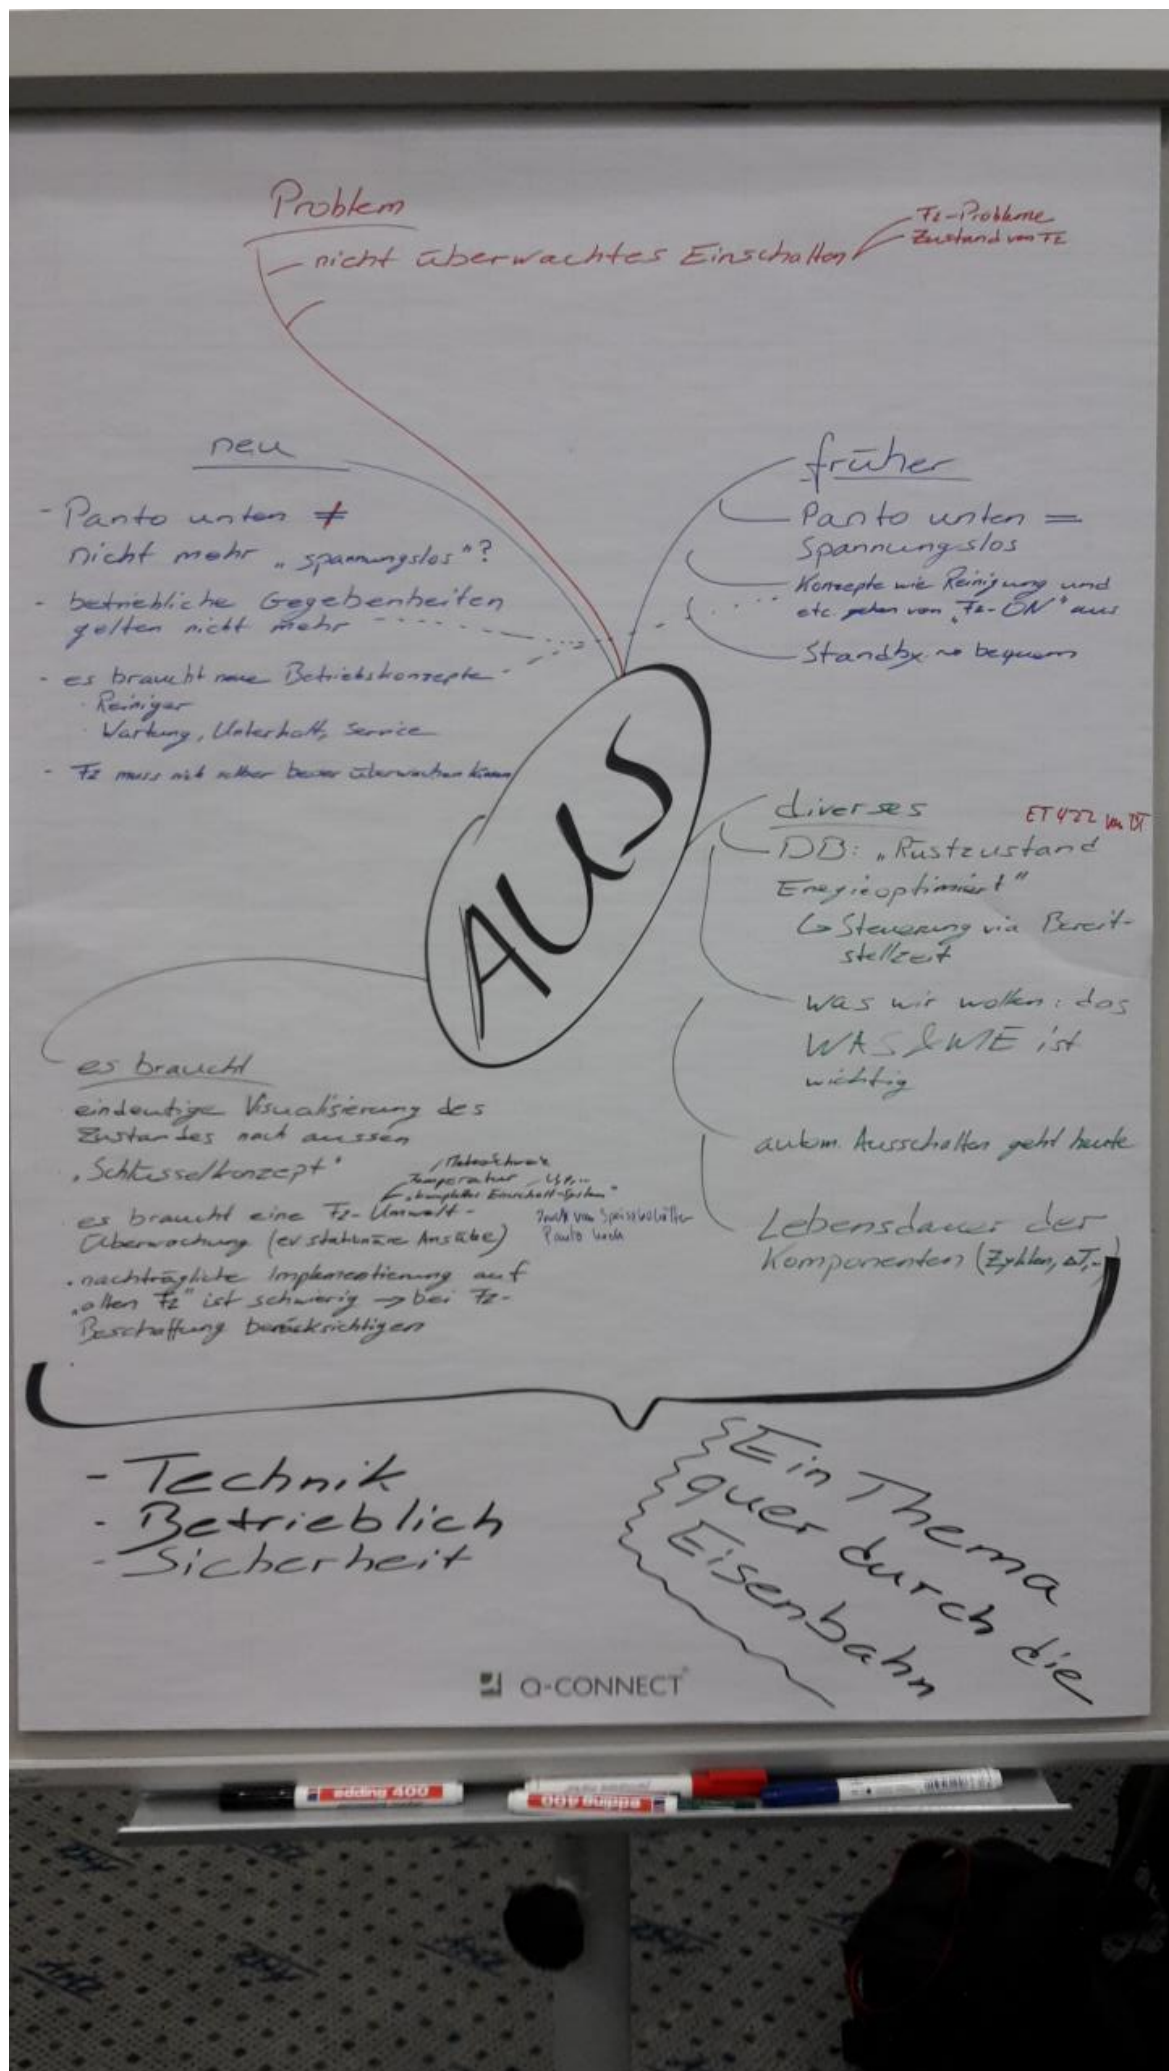 Problem
nicht überwachtes Einschalten
Fz-Probleme
Zustand von Fz
neu
- Panto unten ≠
nicht mehr „spannungslos"?
- betriebliche Gegebenheiten
gelten nicht mehr
- es braucht neue Betriebskonzepte
· Reiniger
· Wartung, Unterhalt, Service
- Fz muss sich selber besser überwachen können
früher
Panto unten =
Spannungslos
Konzepte wie Reinigung und
etc. gehen von „Fz-ON" aus
Standby → bequem
AUS
diverses
ET 422
DB: „Rüstzustand
Energieoptimiert"
↳ Steuerung via Bereit-
stellzeit
was wir wollen: das
WAS & WIE ist
wichtig
autom. Ausschalten geht heute
Lebensdauer der
Komponenten (Zyklen, ΔT,
es braucht
eindeutige Visualisierung des
Zustandes nach aussen
. „Schlüsselkonzept"
Temperatur
„komplettes Einschalt-System"
es braucht eine Fz-Umwelt-
Überwachung (ev stationäre Ansätze)
Panto hoch
. nachträgliche Implementierung auf
„alten Fz" ist schwierig → bei Fz-
Beschaffung berücksichtigen
- Technik
- Betrieblich
- Sicherheit
Ein Thema
quer durch die
Eisenbahn
Q-CONNECT
edding 400
edding 400